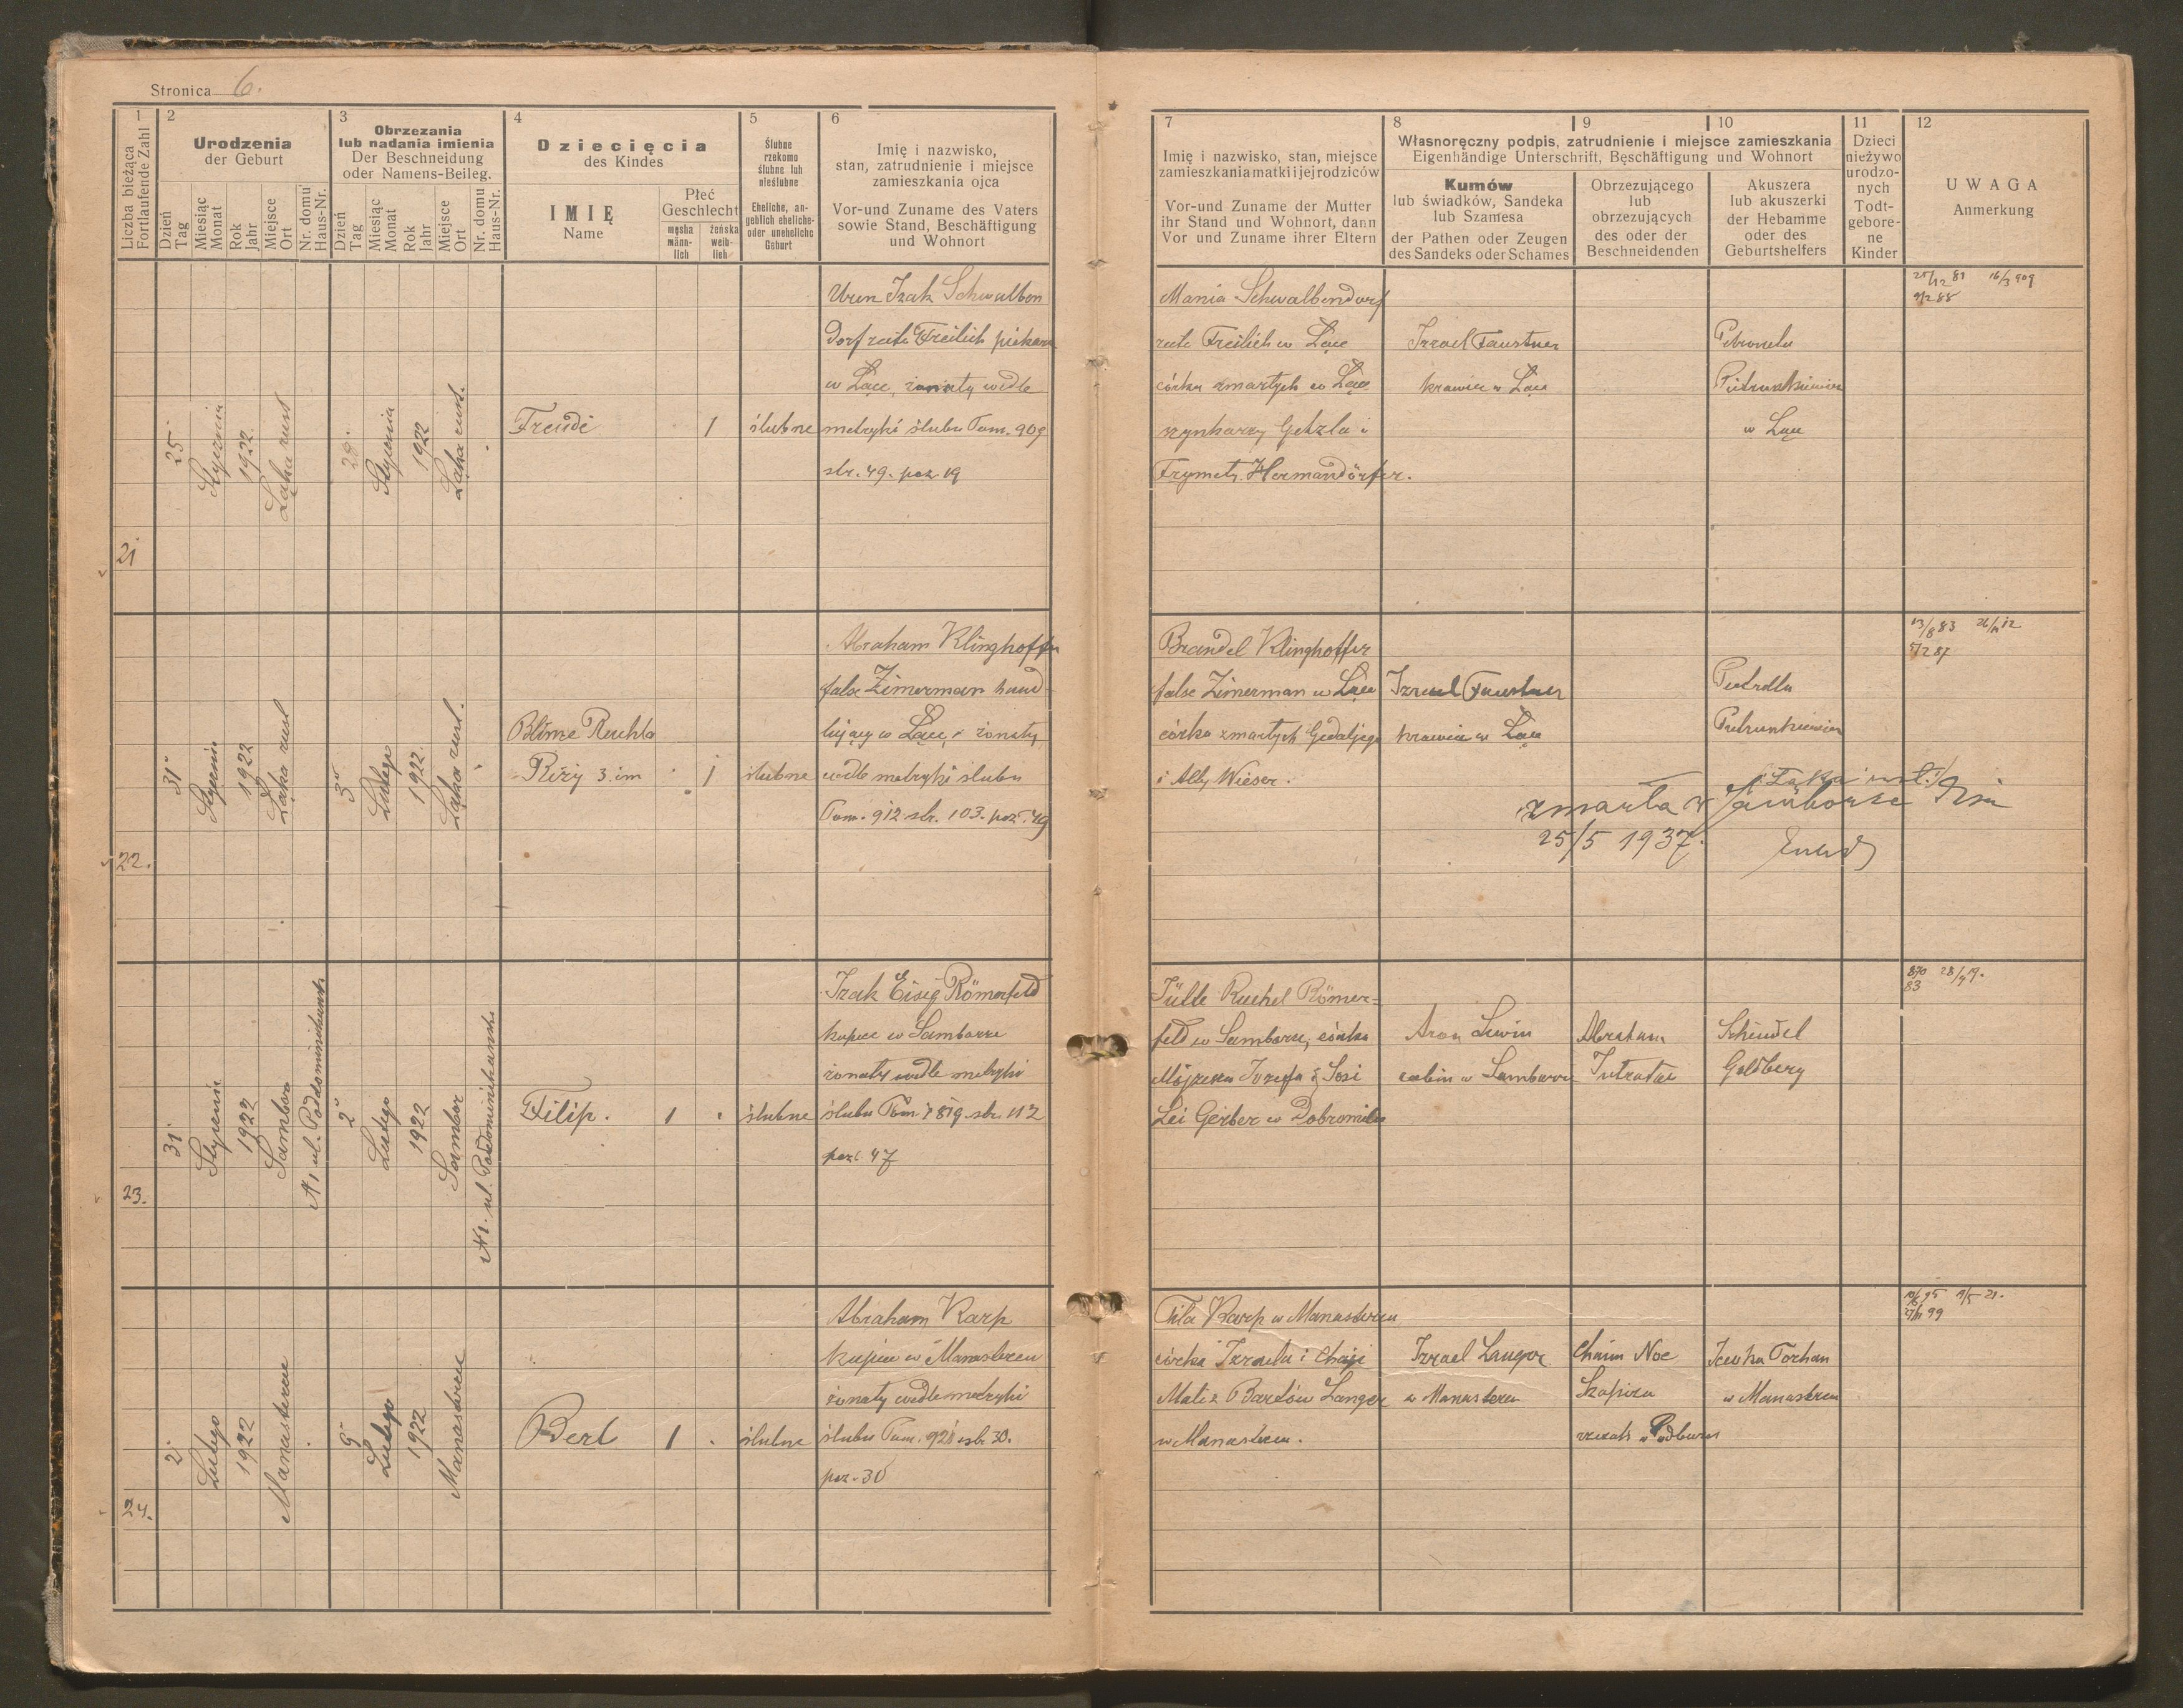 Stronica 6.
1
Liczba bieżąca
Fortlaufende Zahl
2
Urodzenia
der Geburt
Dzień
Tag
Miesiąc
Monat
Rok
Jahr
Miejsce
Ort
Nr. domu
Haus-Nr.
3
Obrzezania
lub nadania imienia
Der Beschneidung
oder Namens-Beileg.
Dzień
Tag
Miesiąc
Monat
Rok
Jahr
Miejsce
Ort
Nr. domu
Haus-Nr.
4
Dziecięcia
des Kindes
IMIĘ
Name
Płeć
Geschlecht
męska
männ-
lich
żeńska
weib-
lich
5
Ślubne
rzekomo
ślubne lub
nieślubne
Eheliche, an-
geblich eheliche-
oder uneheliche
Geburt
6
Imię i nazwisko,
stan, zatrudnienie i miejsce
zamieszkania ojca
Vor-und Zuname des Vaters
sowie Stand, Beschäftigung
und Wohnort
7
Imię i nazwisko, stan, miejsce
zamieszkania matki i jej rodziców
Vor-und Zuname der Mutter
ihr Stand und Wohnort, dann
Vor und Zuname ihrer Eltern
8
9
10
Własnoręczny podpis, zatrudnienie i miejsce zamieszkania
Eigenhändige Unterschrift, Beschäftigung und Wohnort
Kumów
lub świadków, Sandeka
lub Szamesa
der Pathen oder Zeugen
des Sandeks oder Schames
Obrzezującego
lub
obrzezujących
des oder der
Beschneidenden
Akuszera
lub akuszerki
der Hebamme
oder des
Geburtshelfers
11
Dzieci
nieżywo
urodzo-
nych
Todt-
gebore-
ne
Kinder
12
UWAGA
Anmerkung
21
25
Stycznia
1922
Łąka rust
28.
Stycznia
1922
Łąka rust.
Freude
1
ślubne
Uren Izak Schwalben
dorf recte Freilich piekarz
w Łące, żonaty wedle
metryki ślubu Tom. 909
str. 49. poz 19
Mania Schwalbendorf
recte Freilich w Łące
córka zmarłych w Łące
szynkarzy Getzla i
Frymety Hermandörfer.
Izrael Faustner
krawiec w Łące
Petronela
Pietruszkiewicz
w Łące
25/12 81 16/3 909
22.
31
Stycznia
1922
Łąka rust
3
Lutego
1922.
Łąka rust.
Blime Ruchla
Rözy 3. im
1
ślubne
Abraham Klinghoffer
false Zimerman hand-
lujący w Łące, żonaty
wedle metryki ślubu
Tom. 912 str. 103. poz. 49
Brandel Klinghoffer
false Zimerman w Łące
córka zmarłych Gedaljego
i Alty Wieser.
Izrael Faustner
krawiec w Łące
zmarła w Samborze
25/5 1937.
13/8 83 26/11 12
5/2 87
23.
31
Styczeń
1922
Sambor
N1 ul. Podominikańska
2
Lutego
1922
Sambor
N1. ul. Podominikańska
Filip.
1
ślubne
Izak Eisig Römerfeld
kupiec w Samborze
żonaty wedle metryki
ślubu Tom 1819 str. 112
poz. 47
Jütte Ruchel Römer-
feld w Samborze, córka
Mojżesza Józefa i Sosi
Lei Gerber w Dobromilu
Aron Lewin
rabin w Samborze
Abraham
Tutratac
Scheindel
Goldberg
870 28/9 19.
83
24.
2
Lutego
1922
Manasterzec
9
Lutego
1922
Manasterzec
Berl
1
ślubne
Abraham Karp
kupiec w Manasterzcu
żonaty wedle metryki
ślubu Tom. 921 str 30.
poz. 30
Tila Karp w Manasterzcu
córka Izraela i Chaji
Mali z Bardów Langer
w Manasterzcu.
Izrael Langer
w Manasterzcu
Chaim Noe
Szapira
rzezak w Podbużu
Jewka Torhan
w Manasterzcu